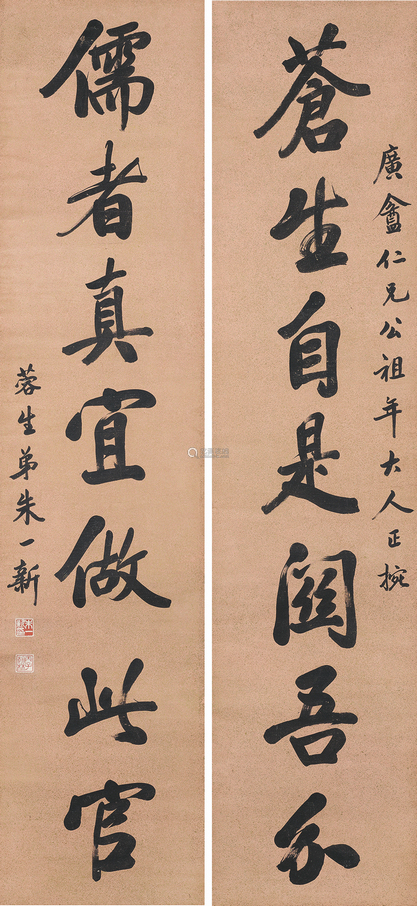 廣盦仁兄公祖年大人正捥
蒼生自是關吾分
儒者真宜做此官
蓉生弟朱一新